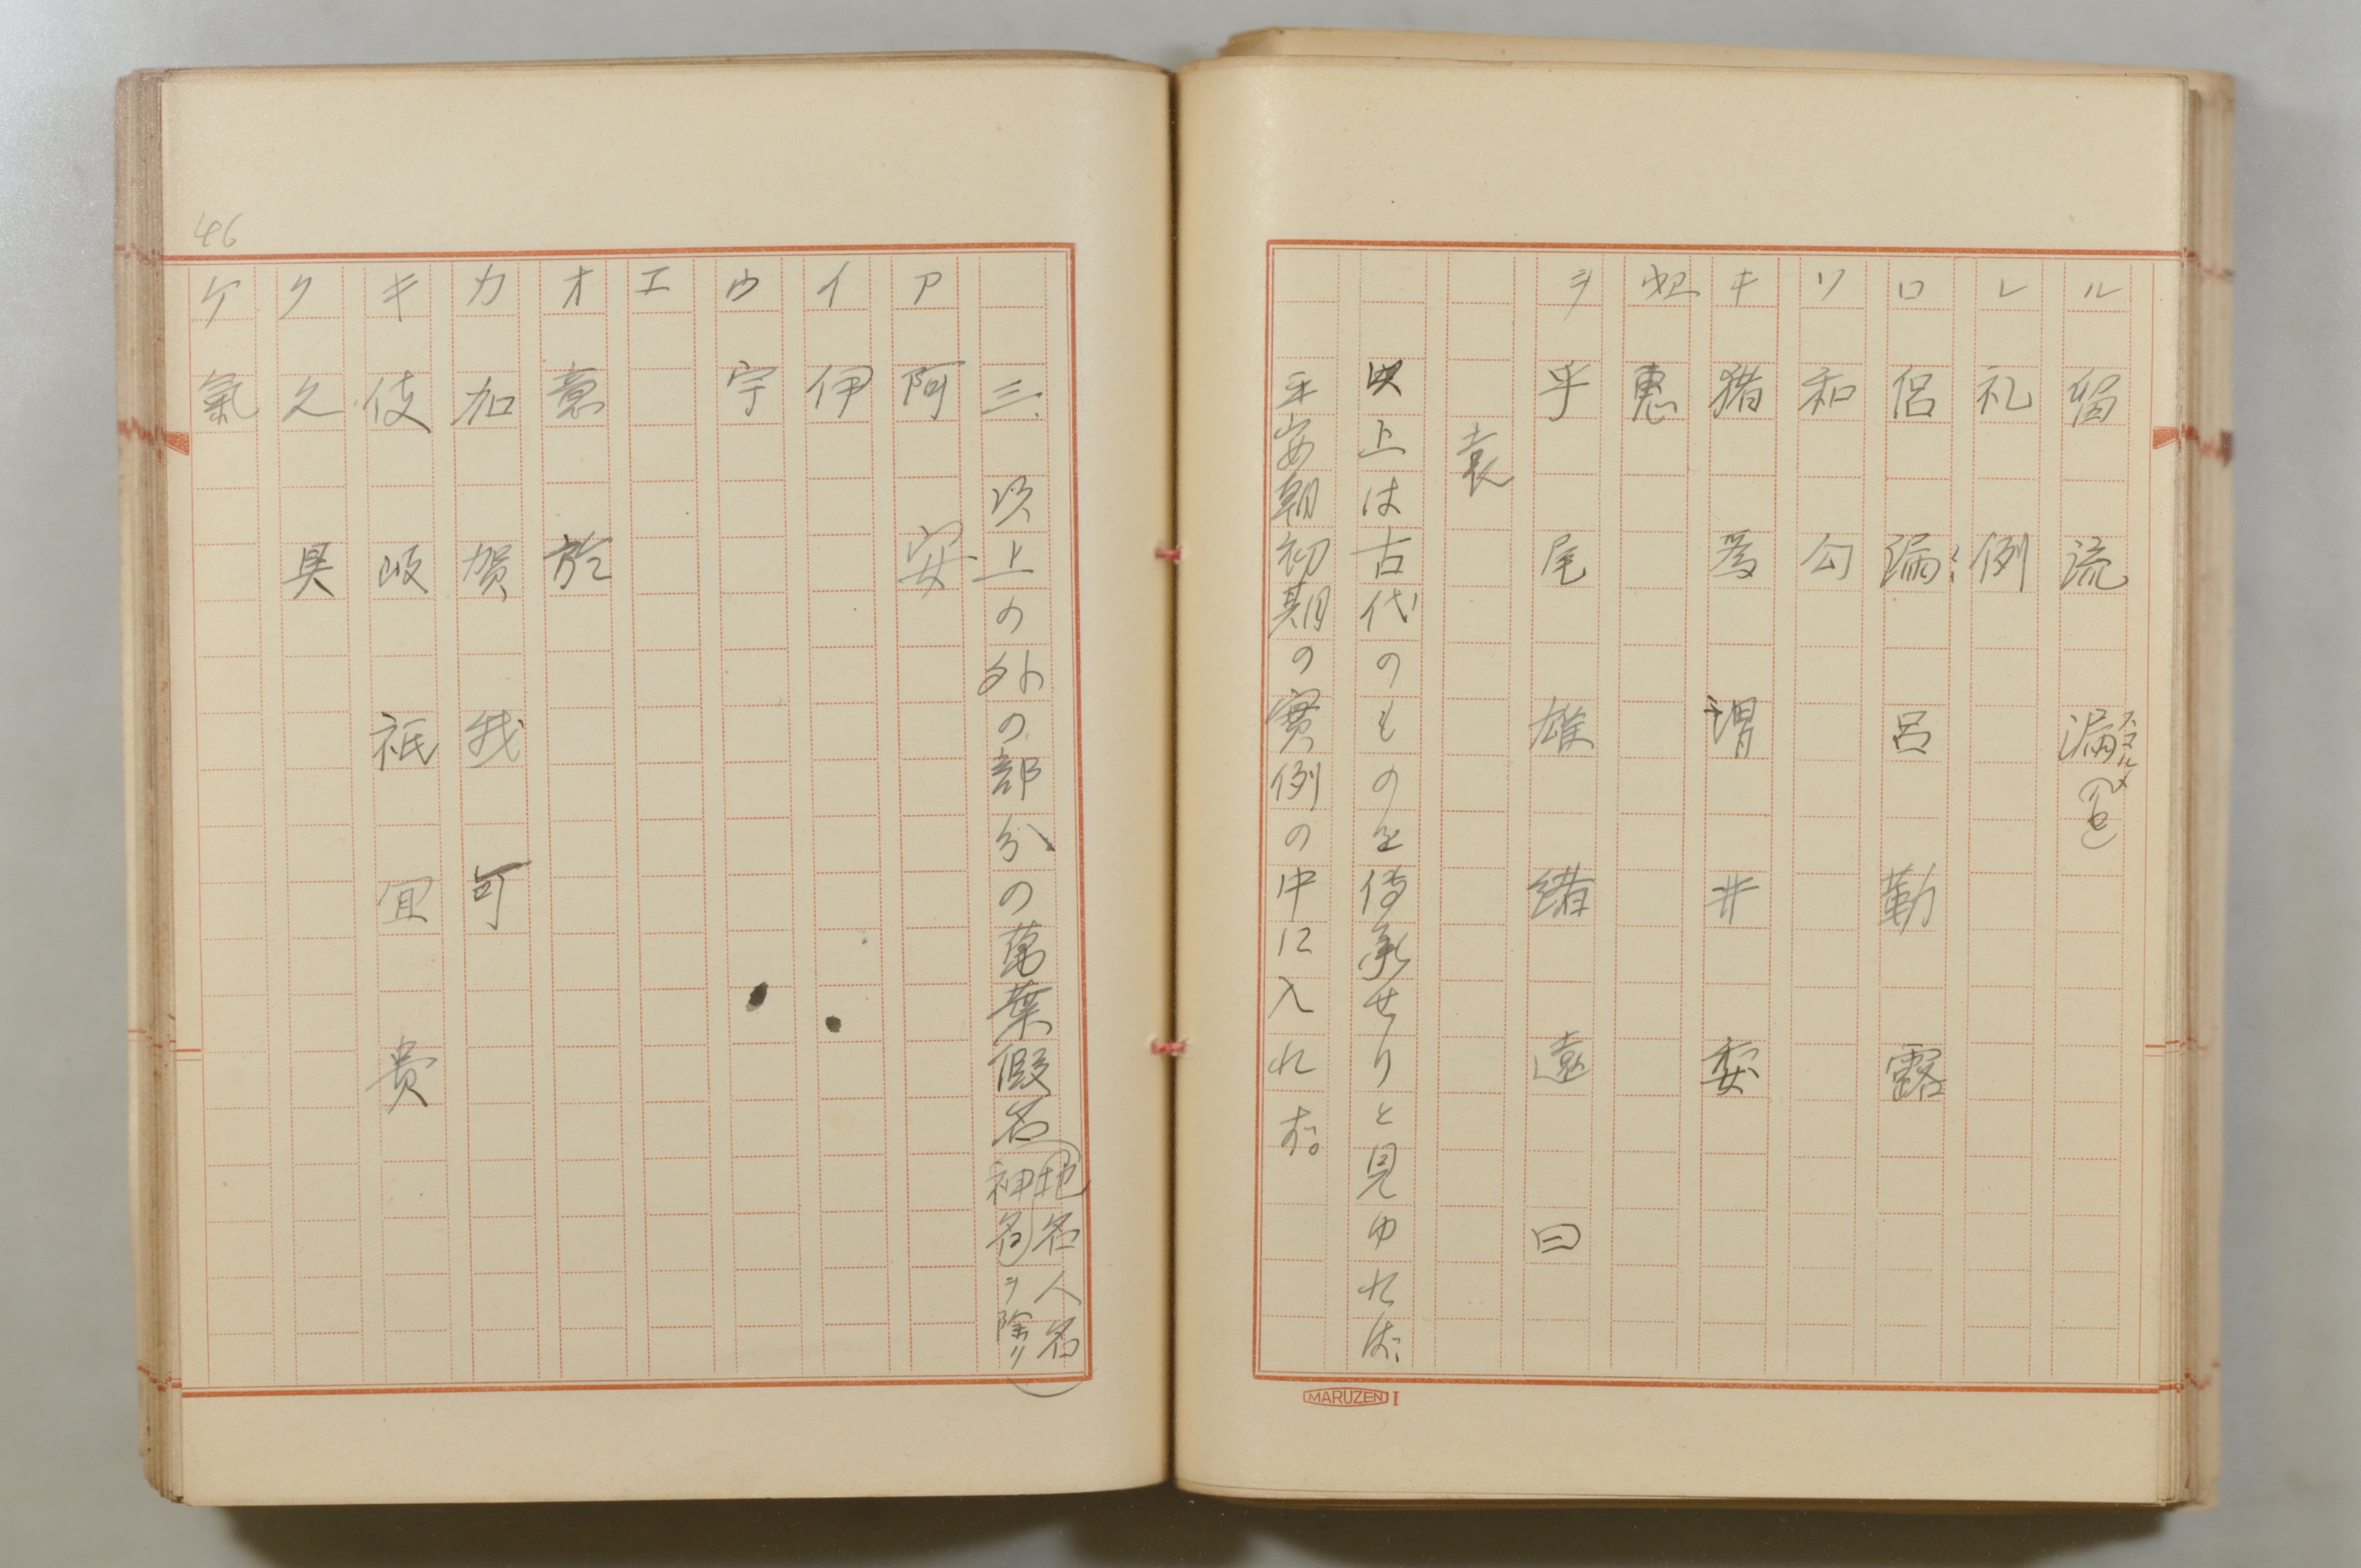 ル 留 流 漏
レ 礼 例
ロ 侶 漏 呂 勒 露
ワ 和 勾
ヰ 猪 爲 謂 井 委
ヱ 惠
ヲ 乎 尾 雄 緒 遠 曰
袁
以上は古代のものを傳承せりと見ゆれば、
平安朝初期の實例の中に入れず。
MARUZEN I
46
三、以上の外の部分の萬葉假名(地名人名
神名ヲ除ク)
ア 阿 安
イ 伊
ウ 宇
エ
オ 意 於
カ 加 賀 我 可
キ 伎 岐 祇 宜 貴
ク 久 具
ケ 氣